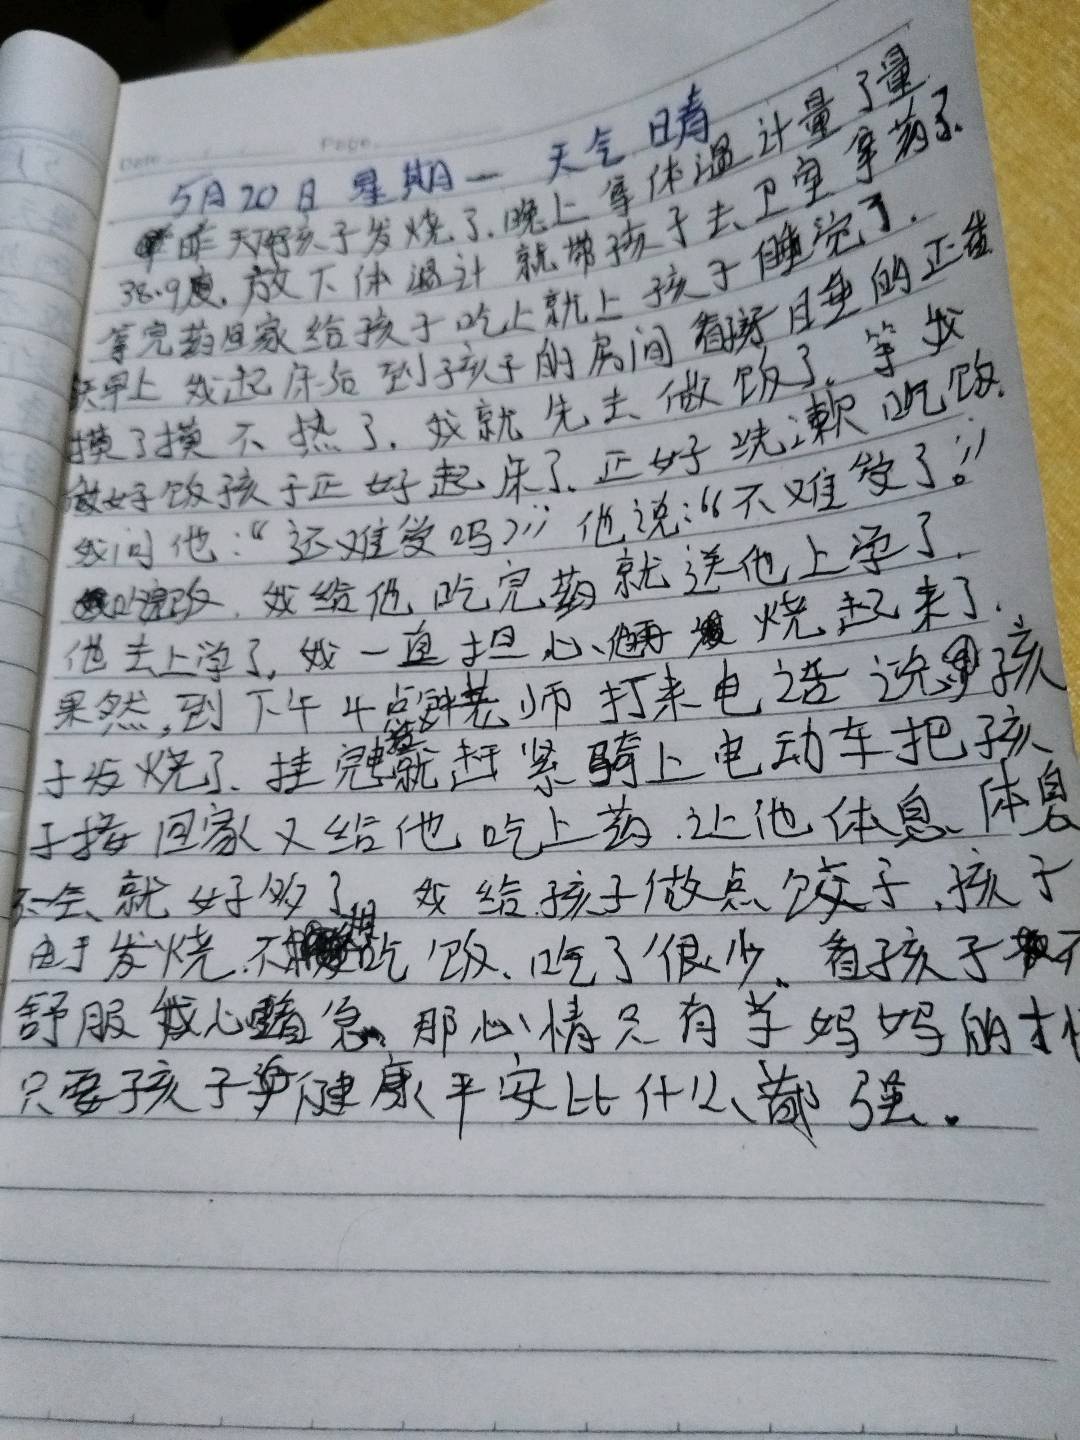 Date Page
5月20日 星期一 天气 晴
昨天孩子发烧了.晚上拿体温计量了量
38.9度.放下体温计 就带孩子去卫室拿药了.
拿完药回家给孩子吃上就上孩子睡觉了.
早上 我起床后到孩子的房间 看孩子睡的正
摸了摸 不热了.我就先去做饭了.等我
做好饭孩子正好起床了.正好洗漱吃饭.
我问他:“还难受吗?” 他说:“不难受了。”
吃完饭.我给他吃完药就送他上学了.
他去上学了.我一直担心、他再 烧起来了.
果然,到下午4点钟老师打来电话说孩
子发烧了.挂完电话就赶紧骑上电动车把孩
子接回家又给他吃上药.让他体息、体息
一会、就好多了 我给孩子做点饺子,孩子
由于发烧.不想吃饭、吃了很少.看孩子不
舒服 我心里着急、那心情只有当妈妈的才
只要孩子健康平安比什么都强。